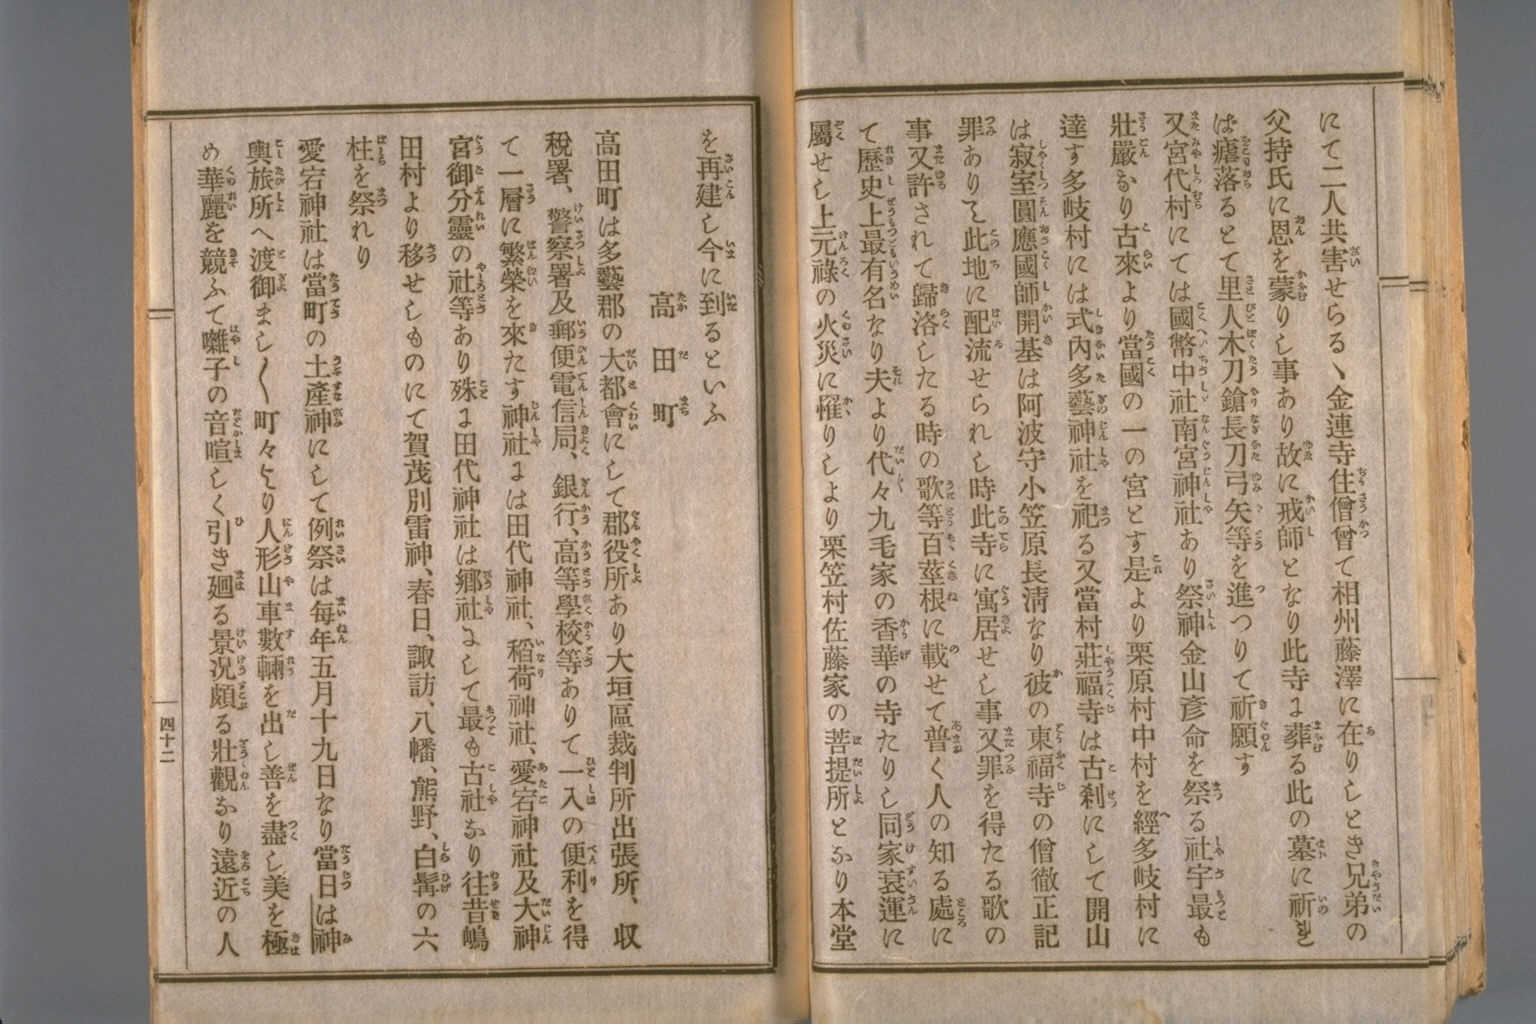 にて二人共害せらるゝ金連寺住僧曾て相州藤澤に在りしとき兄弟の
父持氏に恩を蒙りし事あり故に戒師となり此寺に葬る此の墓に祈れ
ば瘧落るとて里人木刀鎗長刀弓矢等を進つりて祈願す
又宮代村にては國幣中社南宮神社あり祭神金山彦命を祭る社宇最も
壯嚴なり古來より當國の一の宮とす是より栗原村中村を經多岐村に
達す多岐村には式內多藝神社を祀る又當村莊福寺は古刹にして開山
は寂室圓應國師開基は阿波守小笠原長淸なり彼の東福寺の僧徹正記
罪ありて此地に配流せられし時此寺に寓居せし事又罪を得たる歌の
事又許されて歸洛したる時の歌等百莖根に載せて普く人の知る處に
て歷史上最有名なり夫より代々九毛家の香華の寺たりし同家衰運に
屬せし上元祿の火災に罹りしより栗笠村佐藤家の菩提所となり本堂
を再建し今に到るといふ
高田町
高田町は多藝郡の大都會にして郡役所あり大垣區裁判所出張所、收
稅署、警察署及郵便電信局、銀行、高等學校等ありて一入の便利を得
て一層に繁榮を來たす神社には田代神社、稻荷神社、愛宕神社及大神
宮御分靈の社等あり殊に田代神社は鄕社にして最も古社なり往昔嶋
田村より移せしものにて賀茂別雷神、春日、諏訪、八幡、熊野、白髯の六
柱を祭れり
愛宕神社は當町の土產神にして例祭は每年五月十九日なり當日は神
輿旅所へ渡御まし〱町々より人形山車數輛を出し善を盡し美を極
め華麗を競ふて囃子の音喧しく引き廻る景況頗る壯觀なり遠近の人
四十二